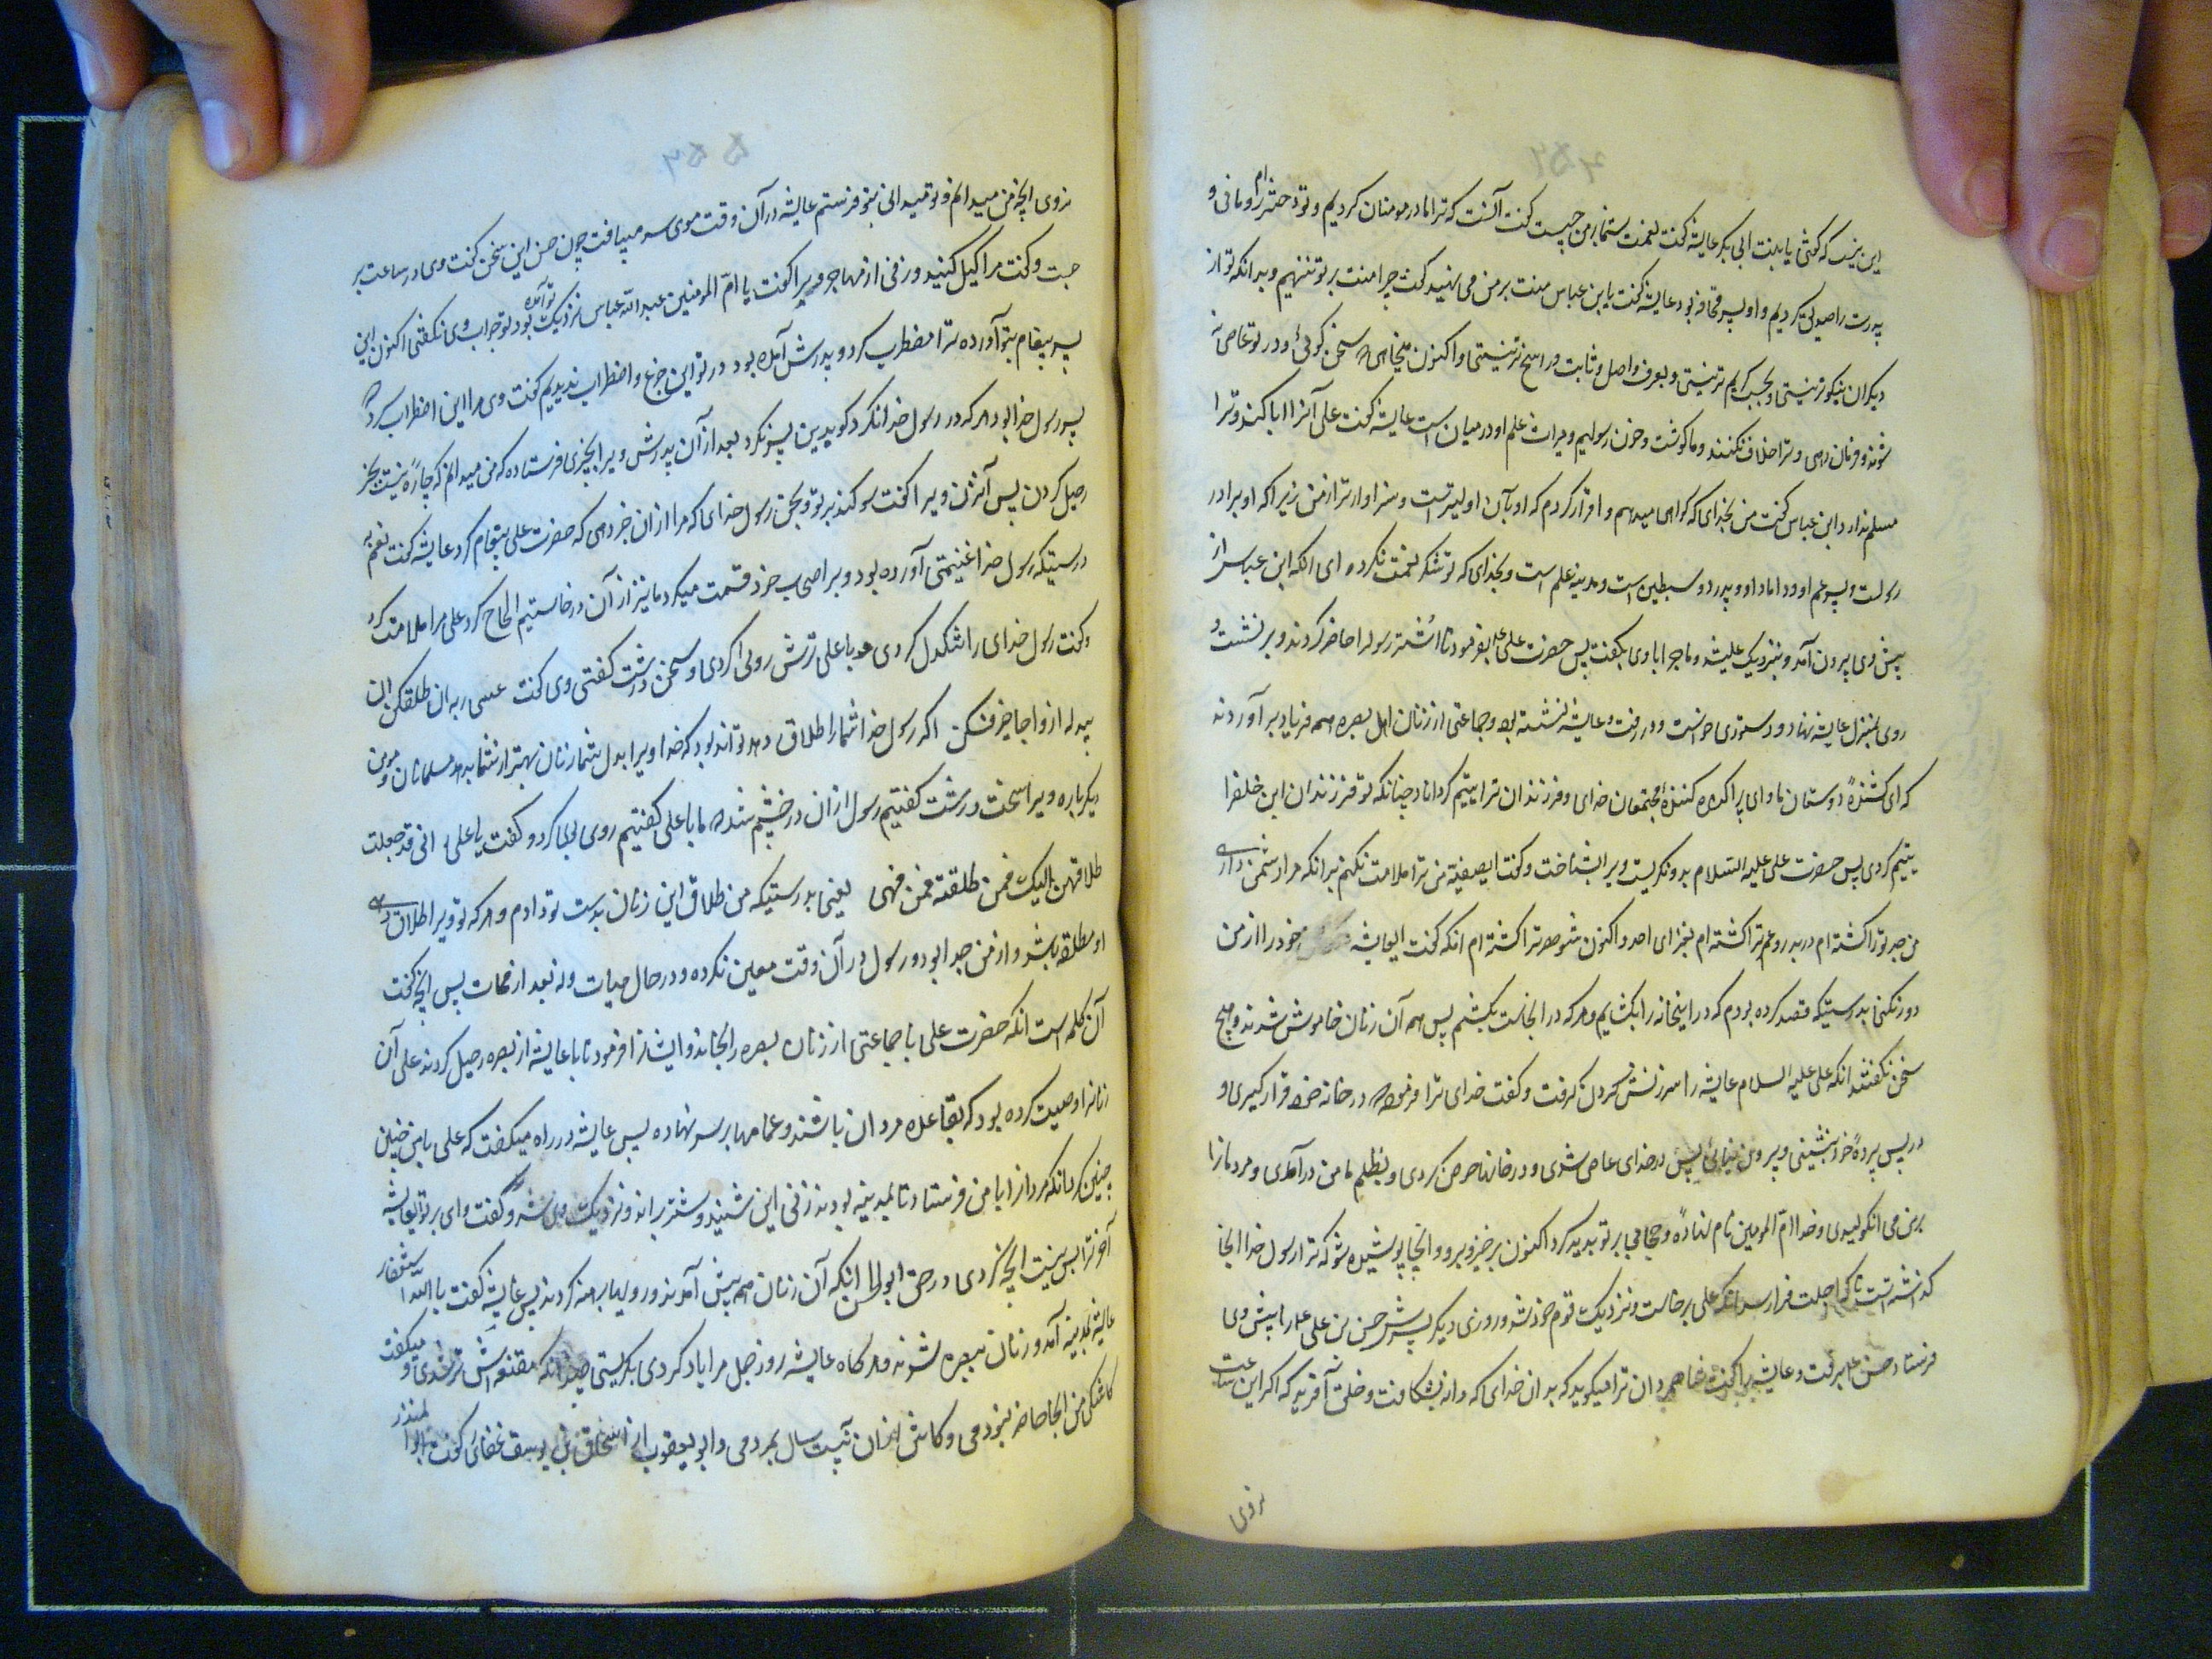 این نیست که گفتی یا بنت ابی بکر عایشه گفت نعمت شما بر من چیست گفت آنست که ترا مادر مومنان کردیم و تو دختر ام رومانی و
پدرت را صدیق کردیم و او پسر قحافه بود عایشه گفت یا بن عباس منت بر من می نهید گفت چرا منت بر تو ننهیم و بدانکه تو از
دیگران نیکوتر نیستی و بحسب کریم تر نیستی و بعرف و اصل و ثابت و راسخ تر نیستی و اکنون میخواهی که سخن گوئی و در تو عاصی نه
شوند و فرمان دهی و ترا خلاف نکنند و ما گوشت و خون رسولیم و میراث علم او در میان ماست عایشه گفت علی آنرا ابا کند و ترا
مسلم ندارد ابن عباس گفت من بخدای که گواهی میدهم و اقرار کردم که او بآن اولیترست و سزاوارتر از من زیرا که او برادر
رسولست و پسر عم او و داماد او و پدر دو سبطین است و مدینه علم است و بخدای که تو شکر نعمت نکرده ای انکه ابن عباس از
پیش وی بیرون آمد و بنزدیک علی شد و ماجرا با وی بگفت پس حضرت علی بفرمود تا اشتر رسول را حاضر کردند و بر نشست و
روی بمنزل عایشه نهاد و دستوری خواست و در رفت و عایشه نشسته بود و جماعتی از زنان اهل بصره همه فریاد بر آوردند
که ای کشندهٔ دوستان ما و ای پراکنده کنندهٔ مجتمعان خدای و فرزندان ترا یتیم گرداناد چنانکه تو فرزندان این خلف را
یتیم کردی پس حضرت علی علیه السلام بدو نگریست و یرا بشناخت و گفت ای صفیه من ترا ملامت نکنم بدانکه مرا دشمن داری
من جد ترا کشته ام در بدر و عم ترا کشته ام بغزای احد و اکنون شوهر ترا کشته ام انکه گفت ای عایشه خود را از من
دور نکنی بدرستیکه قصد کرده بودم که در اینخانه را بکشایم و هر که در انجاست بکشم پس همه آن زنان خاموش شدند و هیچ
سخن نگفتند انکه علی علیه السلام عایشه را سرزنش کردن گرفت و گفت خدای ترا فرموده در خانه خود قرار گیری و
در پس پردهٔ خود بنشینی و بیرون نیائی پس در خدای عاصی شدی و در خانها حرص کردی و بظلم با من در آمدی و مردمانرا
بر من می انگولیدی و خدا ام المومنین نام نهاده و حجابی بر تو پدید کرد اکنون برخیز و برو و انجا پوشیده شو که ترا رسول خدا انجا
گذشته است تا گاه اجلت فرا رسد انکه علی برخاست و نزدیک قوم خود شد و روزی دیگر پسرش حسن بن علی را پیش وی
فرستاد حسن برفت و عایشه را گفت شاه مردان ترا میگوید که بدان خدای که دانه بشکافت و خلق آفرید که اگر این ساعت
نروی
نروی انچه من میدانم و تو میدانی بتو فرستم عایشه در آن وقت موی سر میبافت چون حسن این سخن گفت وی در ساعت بر
جست و گفت مرا کیل کنید و زنی از مهاجر ویرا گفت یا ام المومنین عبد الله عباس نزدیک تو آمده بود تو جواب وی نگفتی اکنون این
پسر پیغام بتو آورده ترا مضطرب کرد و پدرش آمده بود در تو این جزع و اضطراب ندیدیم گفت وی مرا این اضطراب کرد که
پسر رسول خدا بود هر که در رسول خدا نگرد گو بدین پسر نگرد بعد از آن پدرش ویرا بچیزی فرستاده که من میدانم که چاره نیست بجز
رحیل کردن پس آنزن ویرا گفت سوگند بر تو و بحق رسول خدای که مرا ازان خبر دهی که حضرت علی پیغام کرد عایشه گفت نعم به
درستیکه رسول خدا غنیمتی آورده بود و بر اصحاب خود قسمت میکرد ما نیز از آن درخواستیم الحاح کرد علی مرا ملامت کرد
و گفت رسول خدای را تنگدل کردی و با علی ترش روئی کردی و سخن درشت گفتی وی گفت عسی ربه ان طلقکن ان
یبدله ازواجا خیر منکن اگر رسول خدا شما را طلاق دهد تواند بود که خدا ویرا بدل شما زنان بهتر از شما بدهد مسلمانان و مومن
دیگرباره ویرا سخت درشت گفتیم رسول ازان در خشم شد ما با علی گفتیم روی بوی کرد و گفت یا علی انی قد جعلت
طلاقهن الیک فمن طلقته فمن فهی یعنی بدرستیکه من طلاق این زنان بدست تو دادم و هر که تو ویرا طلاق دهی
او مطلقه باشد و از من جدا بود و رسول در آن وقت معین نکرده و در حال حیات و نه بعد از ممات پس انچه گفت
آن کلمه است انکه حضرت علی با جماعتی از زنان بصره را بخاند و ایشانرا فرمود تا با عایشه از بصره رحیل کردند علی آن
زنانرا وصیت کرده بود که بقاعده مردان باشند و عمامها بر سر نهاده پس عایشه در راه میگفت که علی با من چنین
چنین کرد انکه مردانرا با من فرستاد تا بمدینه بودند زنی این شنید و شتر براند و نزدیک وی شد و گفت وای بر تو ای عایشه
آخر ترا بس نیست انچه کردی در حق ابوالحسن انکه آن زنان هم پیش آمدند و رویها برهنه کردند پس عایشه گفت بالله استغفار
عایشه بمدینه آمد و زنان ببصره شدند و هر گاه عایشه روز جمل را یاد کردی بگریستی چندانکه مقنعه اش تر شدی و میگفت
کاشکی من انجا حاضر نبودمی و کاشی ازان بیست سال بمردمی و ابو یعقوب اسحاق بن یوسف غفاری گفت ابو المنذر